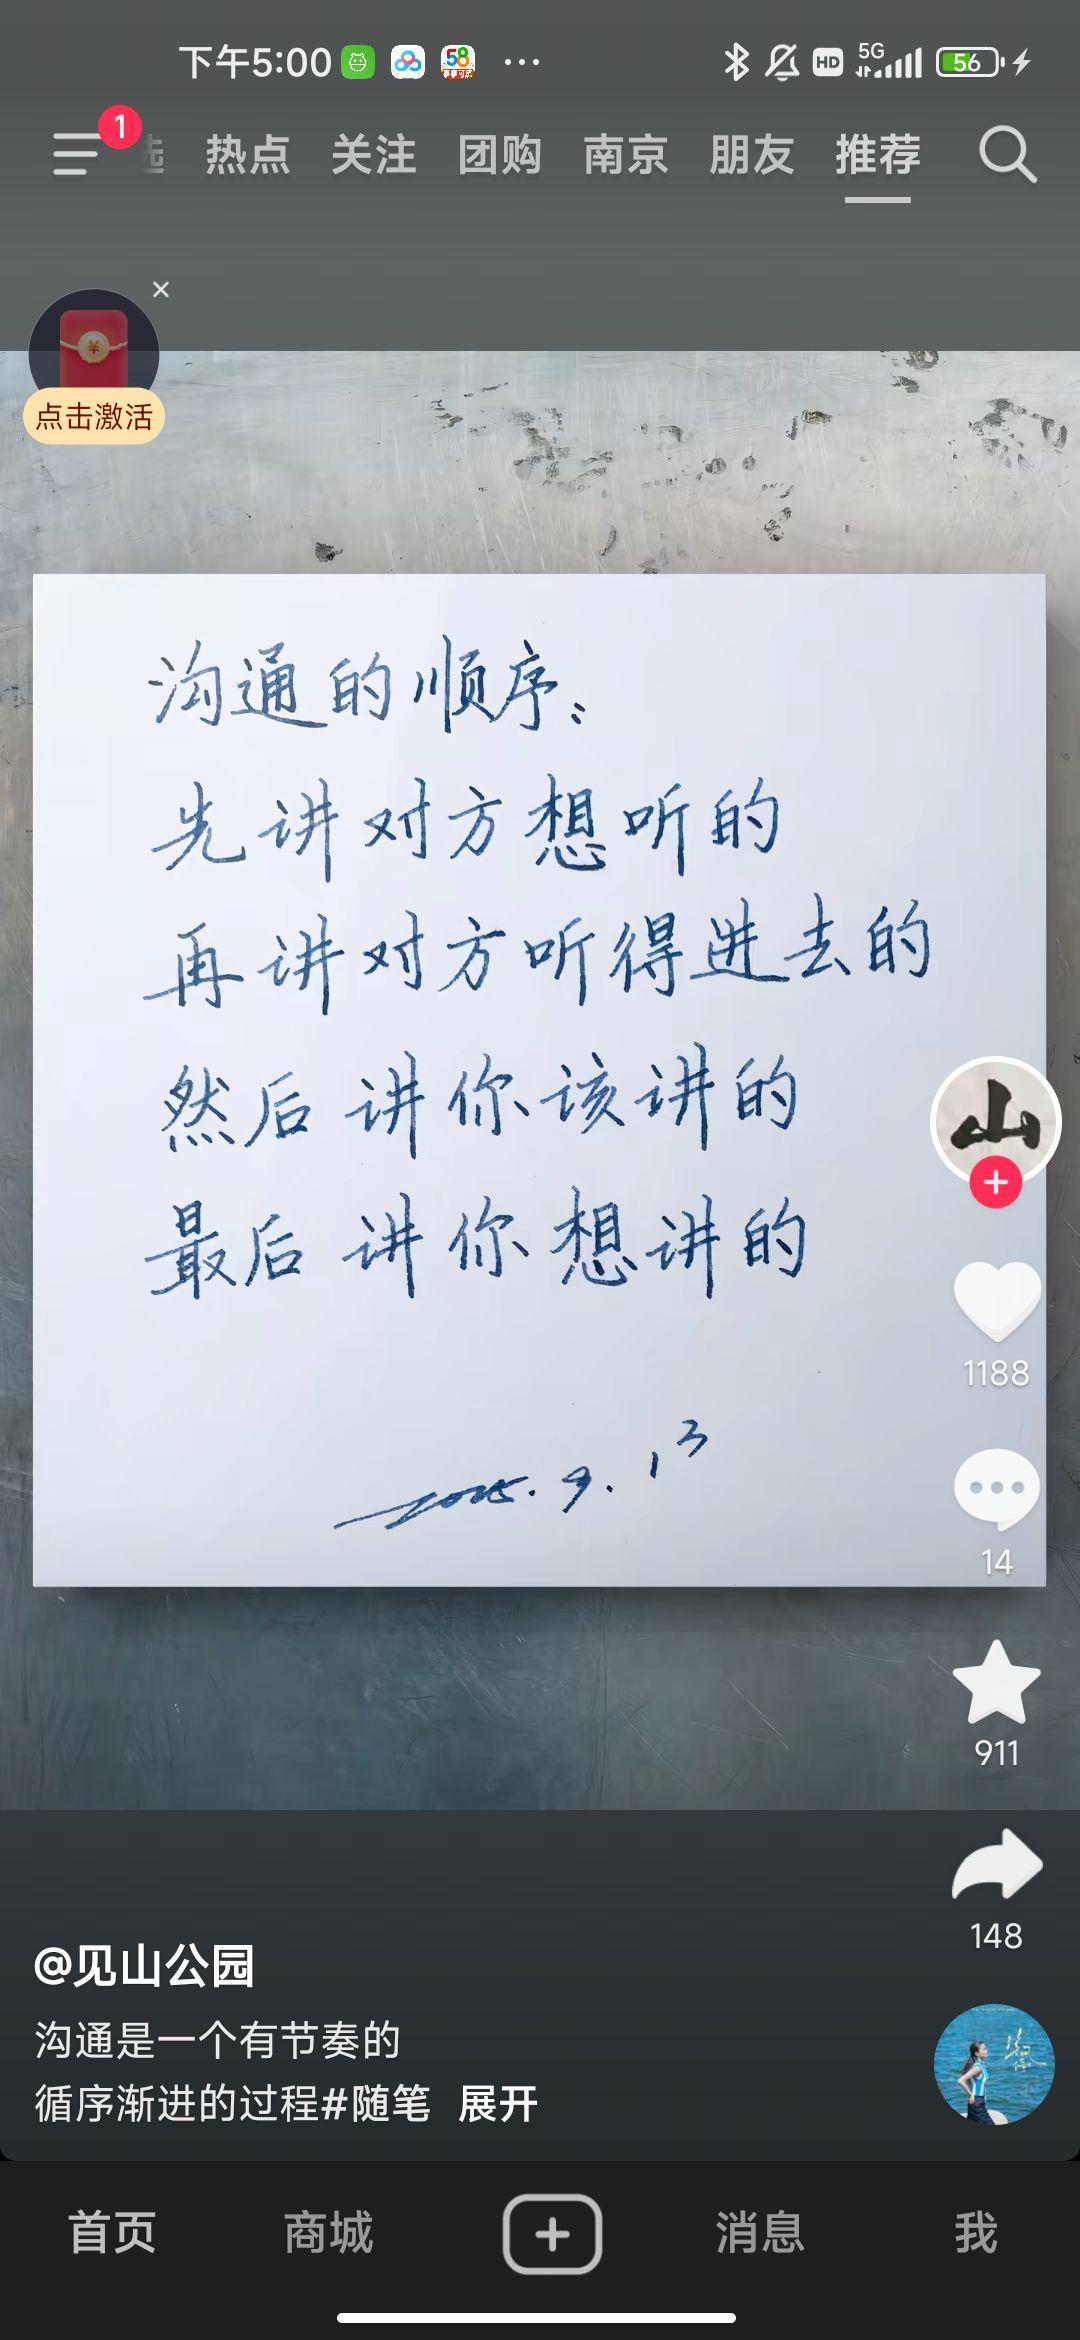 下午5:00
58
HD
5G
56
1
热点 关注 团购 南京 朋友 推荐
点击激活
沟通的顺序:
先讲对方想听的
再讲对方听得进去的
然后讲你该讲的
最后讲你想讲的
2025.9.13
山
1188
14
911
148
@见山公园
沟通是一个有节奏的
循序渐进的过程#随笔 展开
首页 商城 消息 我